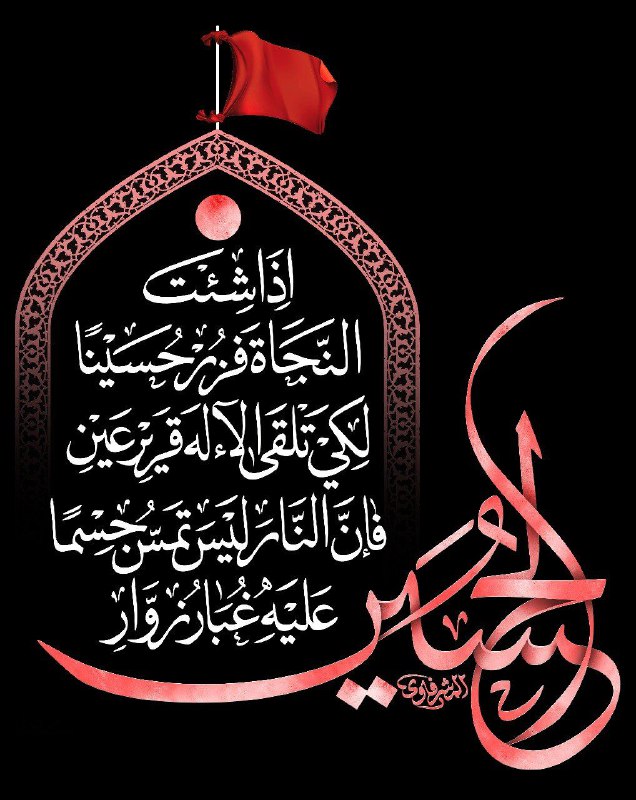 اِذَا شِئْتَ
النَّجَاةَ فَزُرْ حُسَيْنًا
لِكَيْ تَلْقَى الآءلَهَ قَرِيْرَ عَيْنِ
فَإنَّ النَّارَ لَيْسَ تَمَسُّ جِسْمًا
عَلَيْهِ غُبَارُ زُوَّارِ
الحسين
المشرفاوي